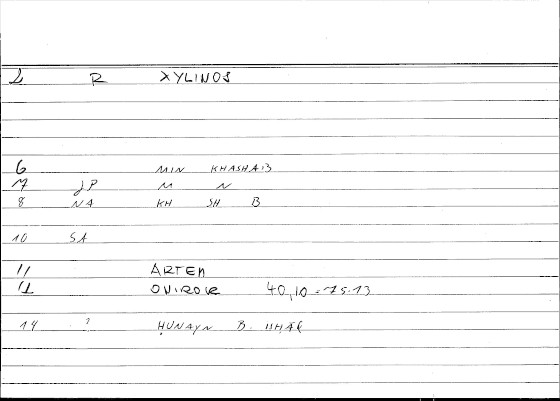 1 R XYLINOS
6 MIN KHASHAB
7 JP M N
8 NA KH SH B
10 SA
11 ARTEM
12 40,10 = 75.13
14 ? ḤUNAYN B. ISḤĀQ